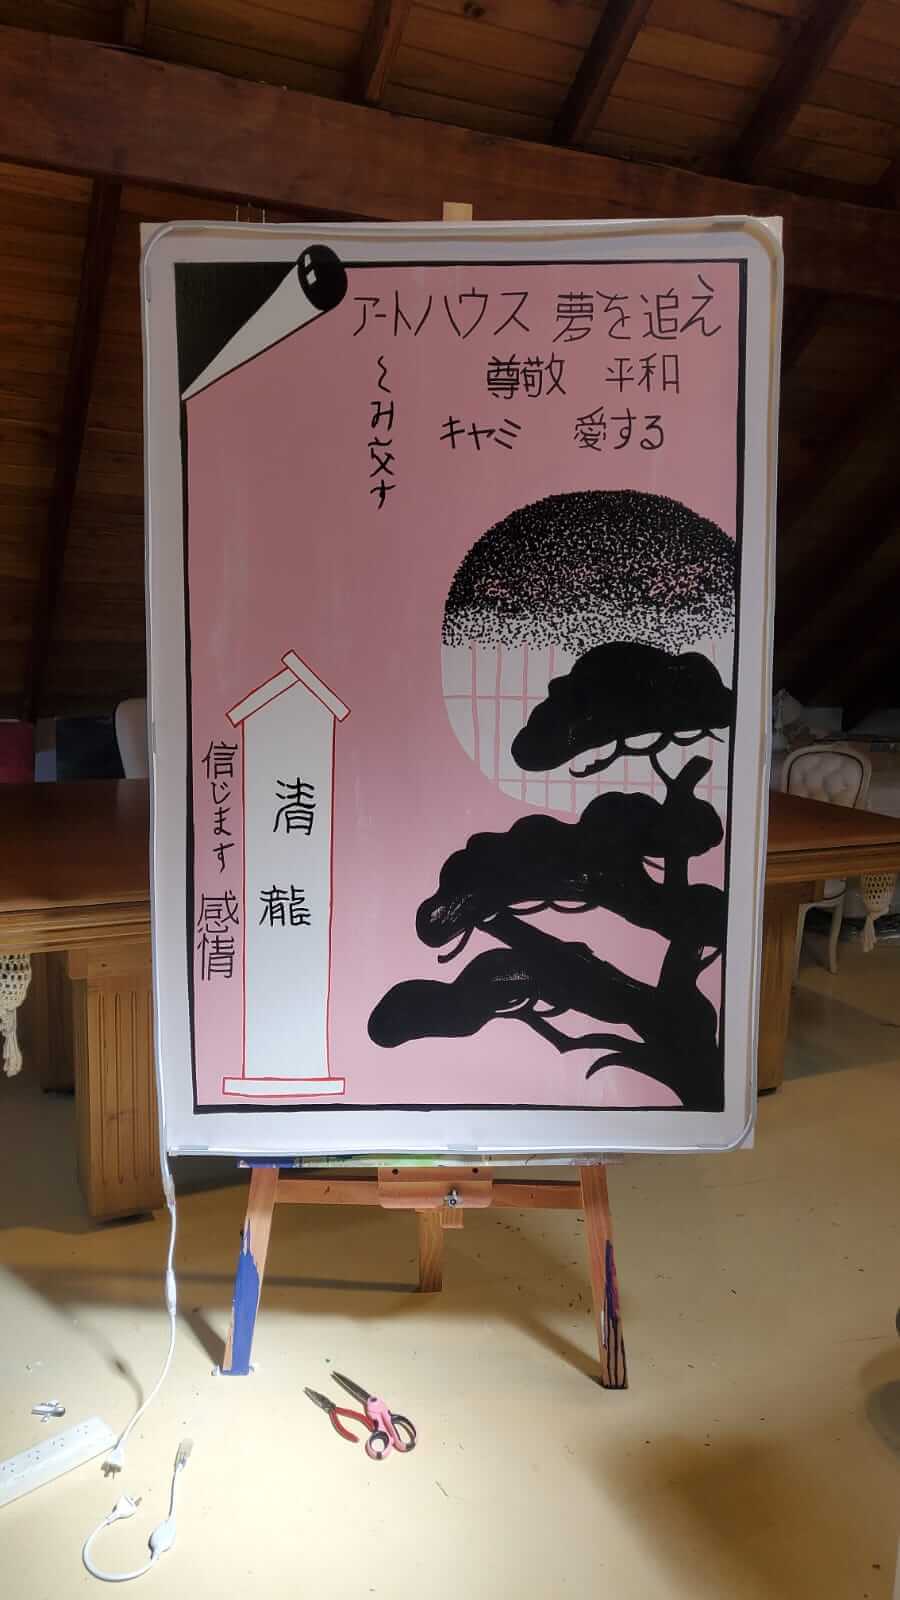 アートハウス 夢を追え
尊敬 平和
キャミ 愛する
くみ交す
清龍
信じます 感情